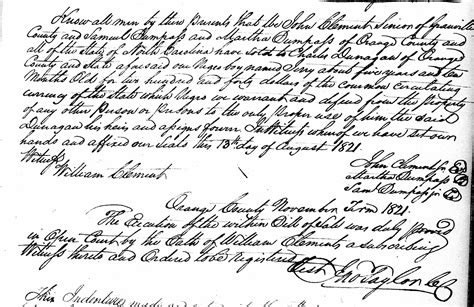 Know all men by these Presents that We John Clement Senior of Granville
County and Samuel Dumpass and Martha Dumpass of Orange County and
all of the State of North Carolina have sold to Charly Dunagan of Orange
County and State aforesaid our Negro boy named Jery about five years and ten
Months Old for two hundred and forty dollars of the common circulating
currency of the State which Negro we warrant and defend from the Property
of any other Person or Persons to the only Proper use of him the said
Dunagan his heirs and assigns forever In Witness whereof we have set our
hands and affixed our seals this 13th day of August 1821.
Witness John Clement
William Clement Martha Dumpass
Sam Dumpass
Orange County November Term 1821.
The Execution of the within Bill of Sale was duly proved
in Open Court by the Oath of William Clement a subscribing
Witness thereto and Ordered to be registered
Test Jno Taylor
This Indenture made and